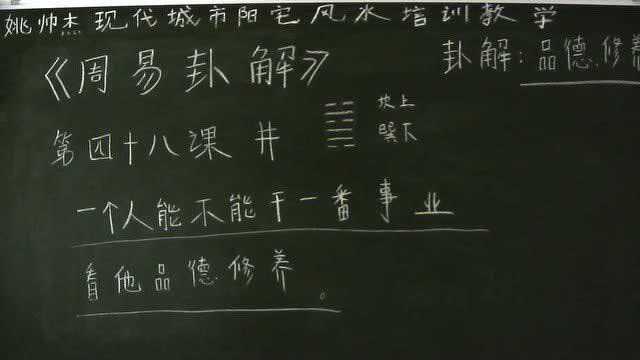 姚帅杰现代城市阳宅风水培训教学
《周易卦解》
卦解：品德.修养
第四十八课 井
坎上
巽下
一个人能不能干一番事业
看他品德.修养。